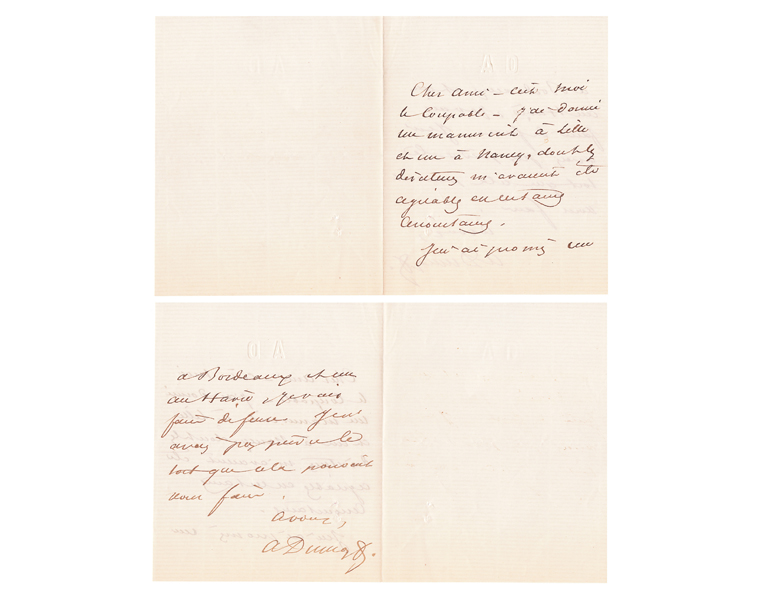 Cher ami – c'est moi
le coupable – j'ai donné
un manuscrit à Lille
et un à Nancy, dont les
directeurs m'avaient été
agréables en certaines
circonstances.
J'en ai promis un
a Bordeaux et un
au Havre, je vais
faire defense. Je n'
avais pas prévu le
tort que cela pouvait
vous faire.
a vous,
A Dumas